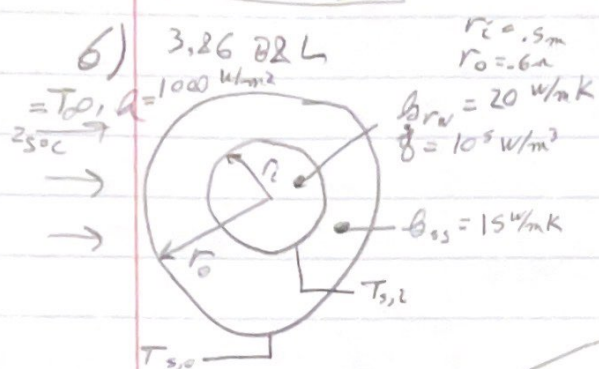 6) 3.86 B&L
ri = .5m
ro = .6m
= T∞, h = 1000 W/m²
25°C
krw = 20 W/mK
q̇ = 10⁵ W/m³
ri
kss = 15 W/mK
ro
Ts,i
Ts,o